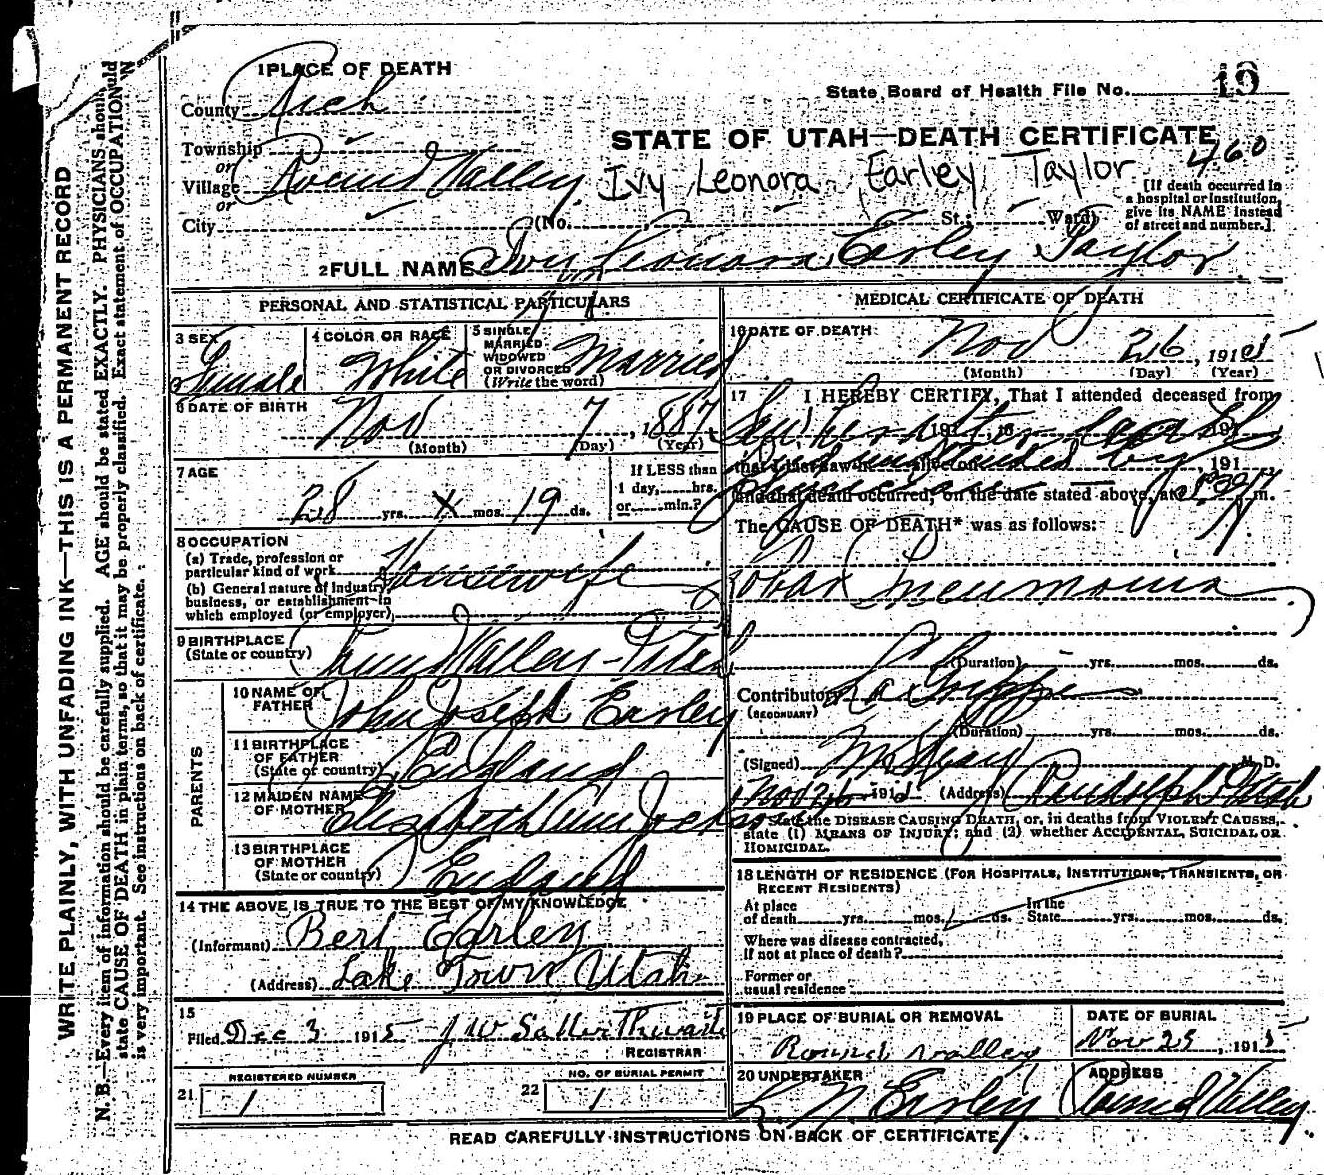 1 PLACE OF DEATH
County Rich
State Board of Health File No. 19
STATE OF UTAH—DEATH CERTIFICATE
460
Township
or
Village Round Valley
or
City
Ivy Leonora Earley Taylor
(No. St.; Ward)
[If death occurred in
a hospital or institution,
give its NAME instead
of street and number.]
2 FULL NAME Ivy Leonora Earley Taylor
PERSONAL AND STATISTICAL PARTICULARS
3 SEX
Female
4 COLOR OR RACE
White
5 SINGLE
MARRIED
WIDOWED
OR DIVORCED
(Write the word)
Married
6 DATE OF BIRTH
Nov 7, 1887
(Month) (Day) (Year)
7 AGE
28 yrs. X mos. 19 ds.
If LESS than
1 day, hrs.
or min.?
8 OCCUPATION
(a) Trade, profession or
particular kind of work Housewife
(b) General nature of industry,
business, or establishment in
which employed (or employer)
9 BIRTHPLACE
(State or country)
Round Valley - Utah
PARENTS
10 NAME OF
FATHER
John Joseph Earley
11 BIRTHPLACE
OF FATHER
(State or country)
England
12 MAIDEN NAME
OF MOTHER
Elizabeth Ann Jackson
13 BIRTHPLACE
OF MOTHER
(State or country)
England
14 THE ABOVE IS TRUE TO THE BEST OF MY KNOWLEDGE
(Informant) Bert Earley
(Address) Lake Town Utah
15
Filed Dec 3 1915 J W Satterthwaite
REGISTRAR
REGISTERED NUMBER
21 1
NO. OF BURIAL PERMIT
22 1
MEDICAL CERTIFICATE OF DEATH
16 DATE OF DEATH
Nov 26, 1915
(Month) (Day) (Year)
17 I HEREBY CERTIFY, That I attended deceased from
191 , to 191
that I last saw h alive on , 191
and that death occurred, on the date stated above, at m.
The CAUSE OF DEATH* was as follows:
Lobar Pneumonia
(Duration) yrs. mos. ds.
Contributory La Grippe
(SECONDARY)
(Duration) yrs. mos. ds.
(Signed) M. D.
Nov 26 1915 (Address) Randolph Utah
* State the DISEASE CAUSING DEATH, or, in deaths from VIOLENT CAUSES,
state (1) MEANS OF INJURY; and (2) whether ACCIDENTAL, SUICIDAL OR
HOMICIDAL.
18 LENGTH OF RESIDENCE (FOR HOSPITALS, INSTITUTIONS, TRANSIENTS, OR
RECENT RESIDENTS)
At place
of death yrs. mos. ds.
In the
State yrs. mos. ds.
Where was disease contracted,
If not at place of death?
Former or
usual residence
19 PLACE OF BURIAL OR REMOVAL
Round valley
DATE OF BURIAL
Nov 29, 1915
20 UNDERTAKER
L. N Earley
ADDRESS
Round Valley
READ CAREFULLY INSTRUCTIONS ON BACK OF CERTIFICATE
WRITE PLAINLY, WITH UNFADING INK—THIS IS A PERMANENT RECORD
N. B.—Every item of information should be carefully supplied. AGE should be stated EXACTLY. PHYSICIANS should
state CAUSE OF DEATH in plain terms, so that it may be properly classified. Exact statement of OCCUPATION
is very important. See instructions on back of certificate.